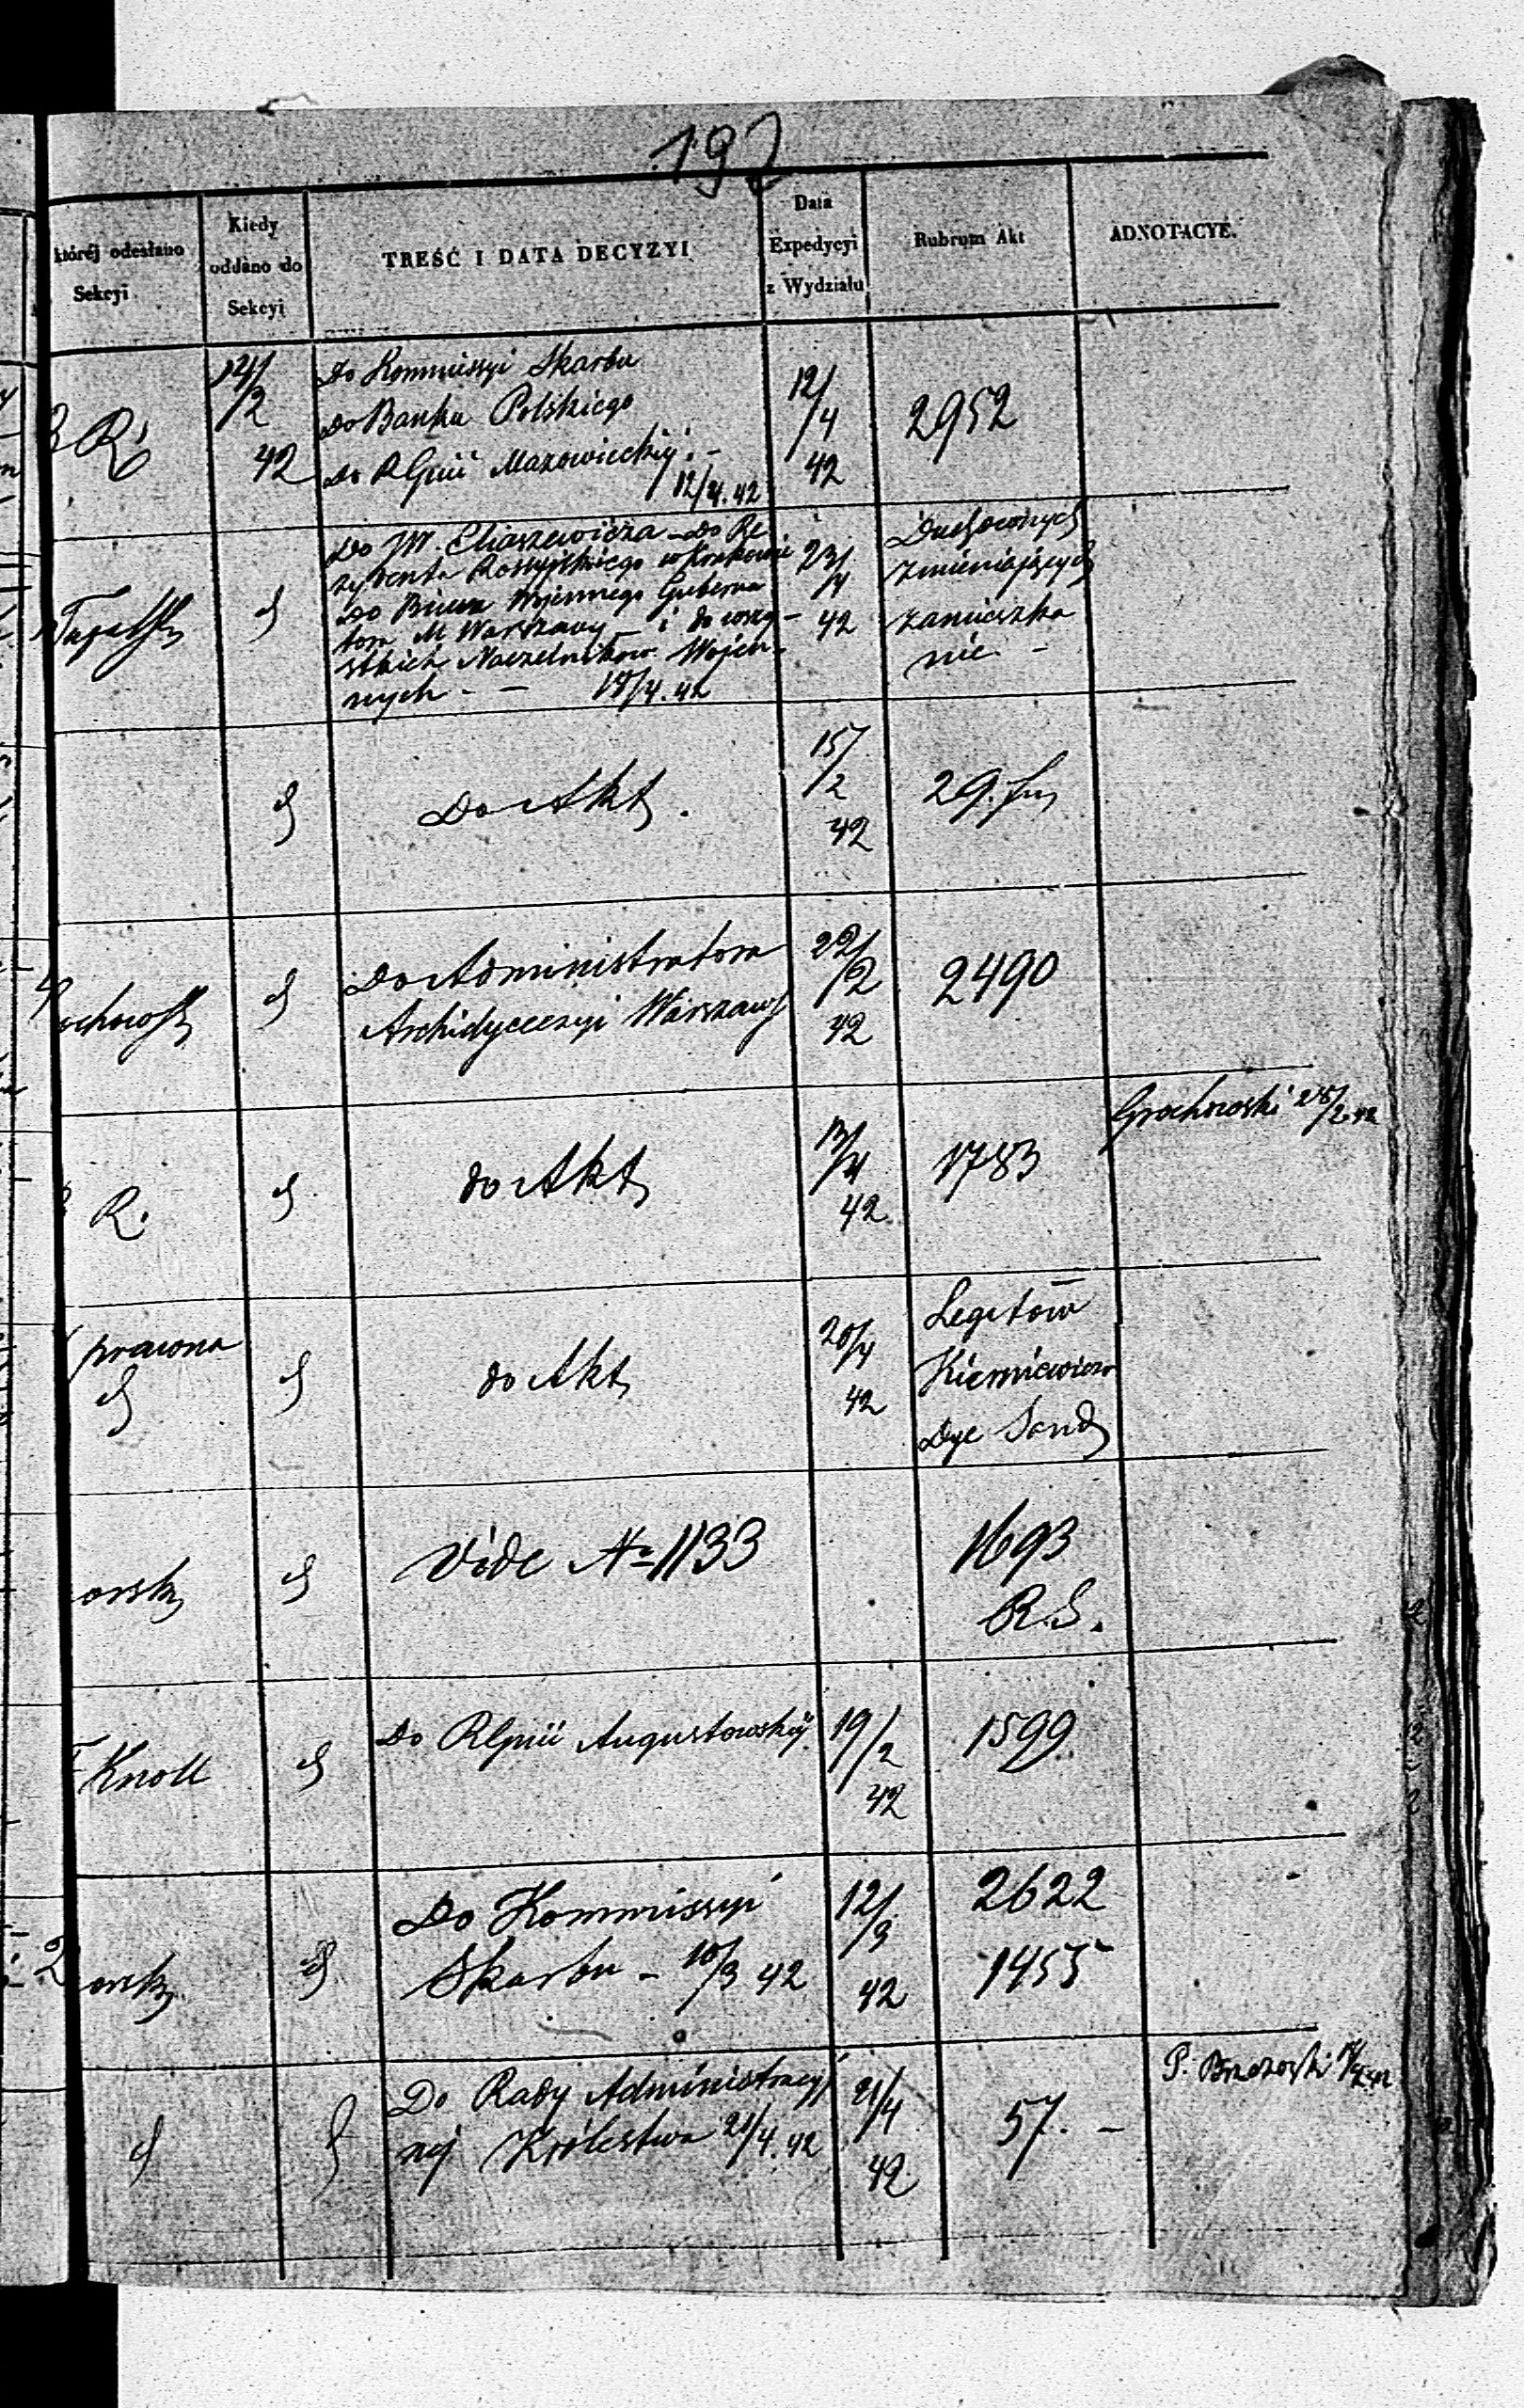 192
której odesłano
Sekcyi
Kiedy
oddano do
Sekcyi
TREŚĆ I DATA DECYZYI
Data
Expedycyi
z Wydziału
Rubrum Akt
ADNOTACYE.
R.
12/
/2
42
Do Kommissyi Skarbu
Do Banku Polskiego
Do RGnii Mazowieckiej. -
12/4. 42
12/
/4
42
2952
Do JW. Eliaszewicza - Do Re
zydenta Rossyjskiego w Krakowie
Do Biura Wojennego Guberna
tora M Warszawy - i do wszy-
stkich Naczelników Wojen-
nych - - 19/4. 42
23/
/4
42
Duchownych
zmieniających
zamieszka
nie. -
Do Akt.
15/
/2
42
29.
Do Administratora
Archidyecezyi Warszaws
22/
/2
42
2490
R.
do Akt
13/
/4
42
1783
Grochowski 28/2 42
prawna
do Akt
20/4
42
Legatów
Kierniewicza
Dye Sand
orsk
Vide No 1133
1693
R.S.
Knoll
Do RGnii Augustowskiej
19/
/2
42
1599
Do Kommissyi
Skarbu - 10/3 42
12/
/3
42
2622
1455
Do Rady Administracyj
nej Królestwa 21/4. 42
21/4
42
57. -
P. Brzozowski